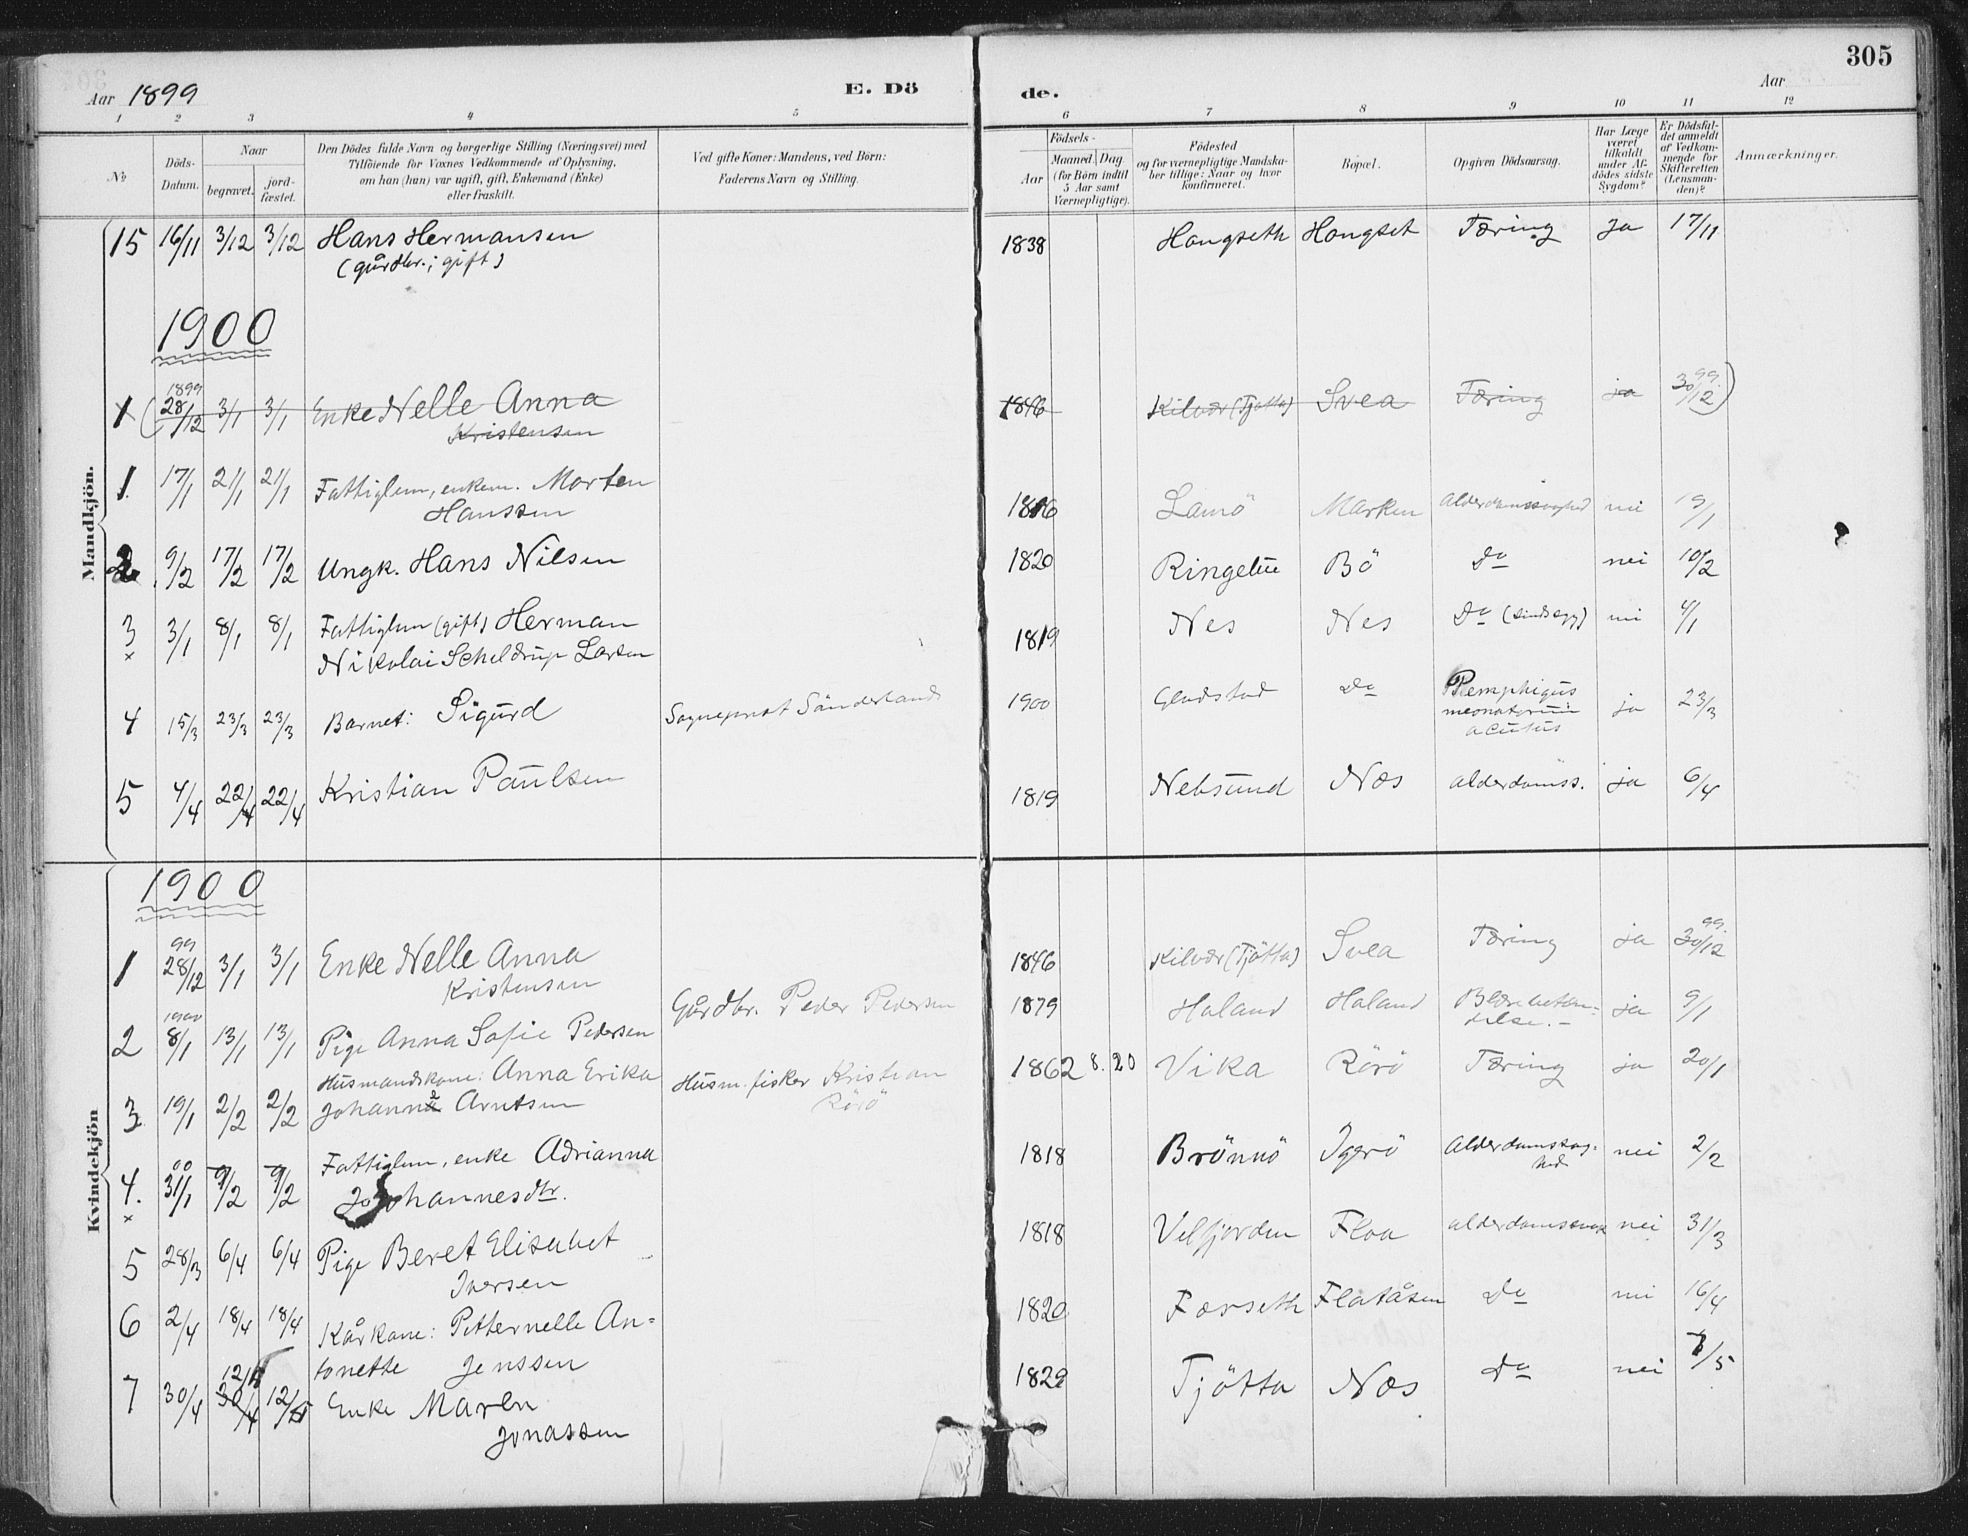 305
Aar 1899 E. Dö de. Aar
1 2 3 4 5 6 7 8 9 10 11 12
№ Döds-Datum. Naar begravet. jord-fæstet. Den Dödes fulde Navn og borgerlige Stilling (Næringsvei) med Tilföiende for Voxnes Vedkommende af Oplysning, om han (hun) var ugift, gift, Enkemand (Enke) eller fraskilt. Ved gifte Koner: Mandens, ved Börn: Faderens Navn og Stilling. Födsels- Aar Maaned. Dag (for Börn indtil 5 Aar samt Værnepligtige). Födested og for værnepligtige Mandska-ber tillige: Naar og hvor konfirmeret. Bopæl. Opgiven Dödsaarsag. Har Læge været tilkaldt under Af-dödes sidste Sygdom? Er Dödsfal-det anmeldt af Vedkom-mende for Skifteretten (Lensman-den)? Anmærkninger.
Mandkjön.
15 16/11 3/12 3/12 Hans Hermansen 1838 Hongseth Hongset Tæring ja 17/11
(gårdbr.; gift)
1900
1899
1 (28/12 3/1 3/1 Enke Nelle Anna 1846 Kilvær (Tjötta) Svea Tæring ja 30/12 99)
Kristensen
1. 17/1 21/1 21/1 Fattiglem, enkem. Morten
Hanssen 1816 Marken Alderdomssvaghed nei 19/1
2 9/2 17/2 17/2 Ungk. Hans Nilsen 1820 Bö Do nei 10/2
3 3/1 8/1 8/1 Fattiglem (gift) Herman 1819 Nes Nes Do (sindssyg) nei 4/1
x Nikolai Scheldrup Larsen
4 15/3 23/3 23/3 Barnet: Sigurd Sogneprest Sönderland 1900 Gladstad Do Pemphigus
neonatorum
acutus ja 23/3
5 4/4 22/4 22/4 Kristian Paulsen 1819 Nebsund Næs Alderdomss. ja 6/4
Kvindekjön
1900
99
1 28/12 3/1 3/1 Enke Nelle Anna 1846 Kilvær (Tjötta) Svea Tæring ja 30/12 99
Kristensen
1900
2 8/1 13/1 13/1 Pige Anna Sofie Pedersen Gårdbr. Peder Pedersen 1879 Holand Holand Blærebetæn-
delse. ja 9/1
Husmandskone: Anna Erika Husm. fisker Kristian 1862 8. 20 Vika Rörö Tæring ja 20/1
3 19/1 2/2 2/2 Johanna Arntsen Rörö
00
4. 31/1 9/2 9/2 Fattiglem, enke Adrianna 1818 Brönnö Ygerö Alderdomssvag-
hed nei 2/2
x Johannesdtr.
5 28/3 6/4 6/4 Pige Beret Elisabet 1818 Velfjorden Floa nei 31/3
Iversen
6 2/4 18/4 18/4 Kårkone: Petternelle An= 1820 Færseth Flatåsen Do nei 16/4
tonette Jenssen
12/5
7 30/4 30/4 12/5 Enke Maren 1829 Tjötta Næs Do nei 7/5
Jonassen